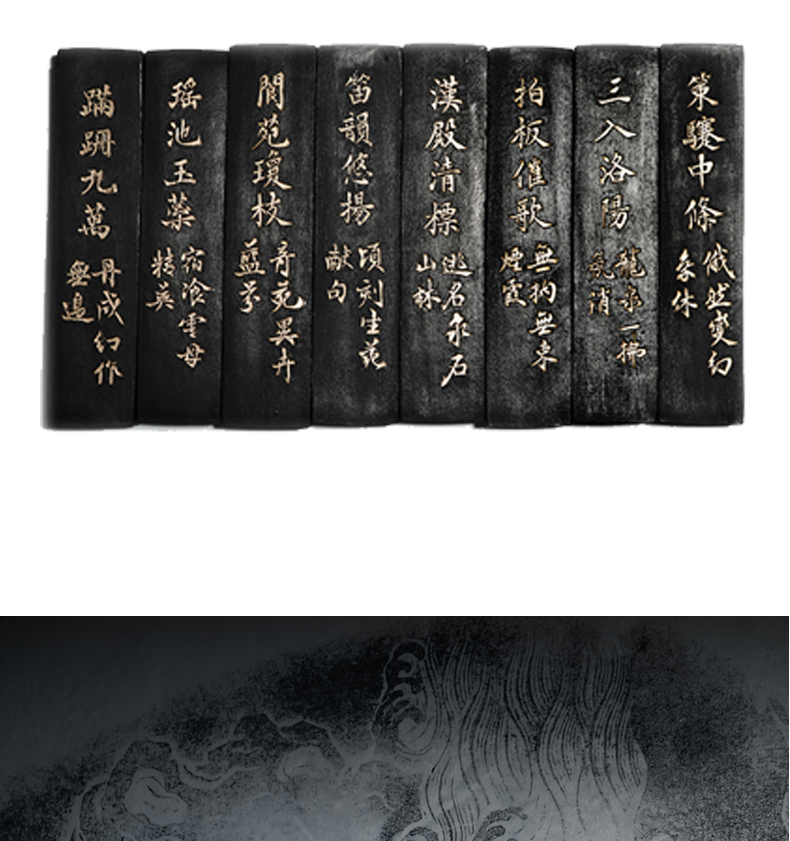 策驤中條
俄然變幻
休
三入洛陽
龍泉一拂
氛消
拍板催歌
無拘無束
煙霞
漢殿清標
逃名泉石
山林
笛韻悠揚
頃刻生花
献句
閬苑瓊枝
奇苑異卉
藍芬
瑤池玉蕖
宿飡雲母
精英
蹣跚九萬
丹成幻作
無邊